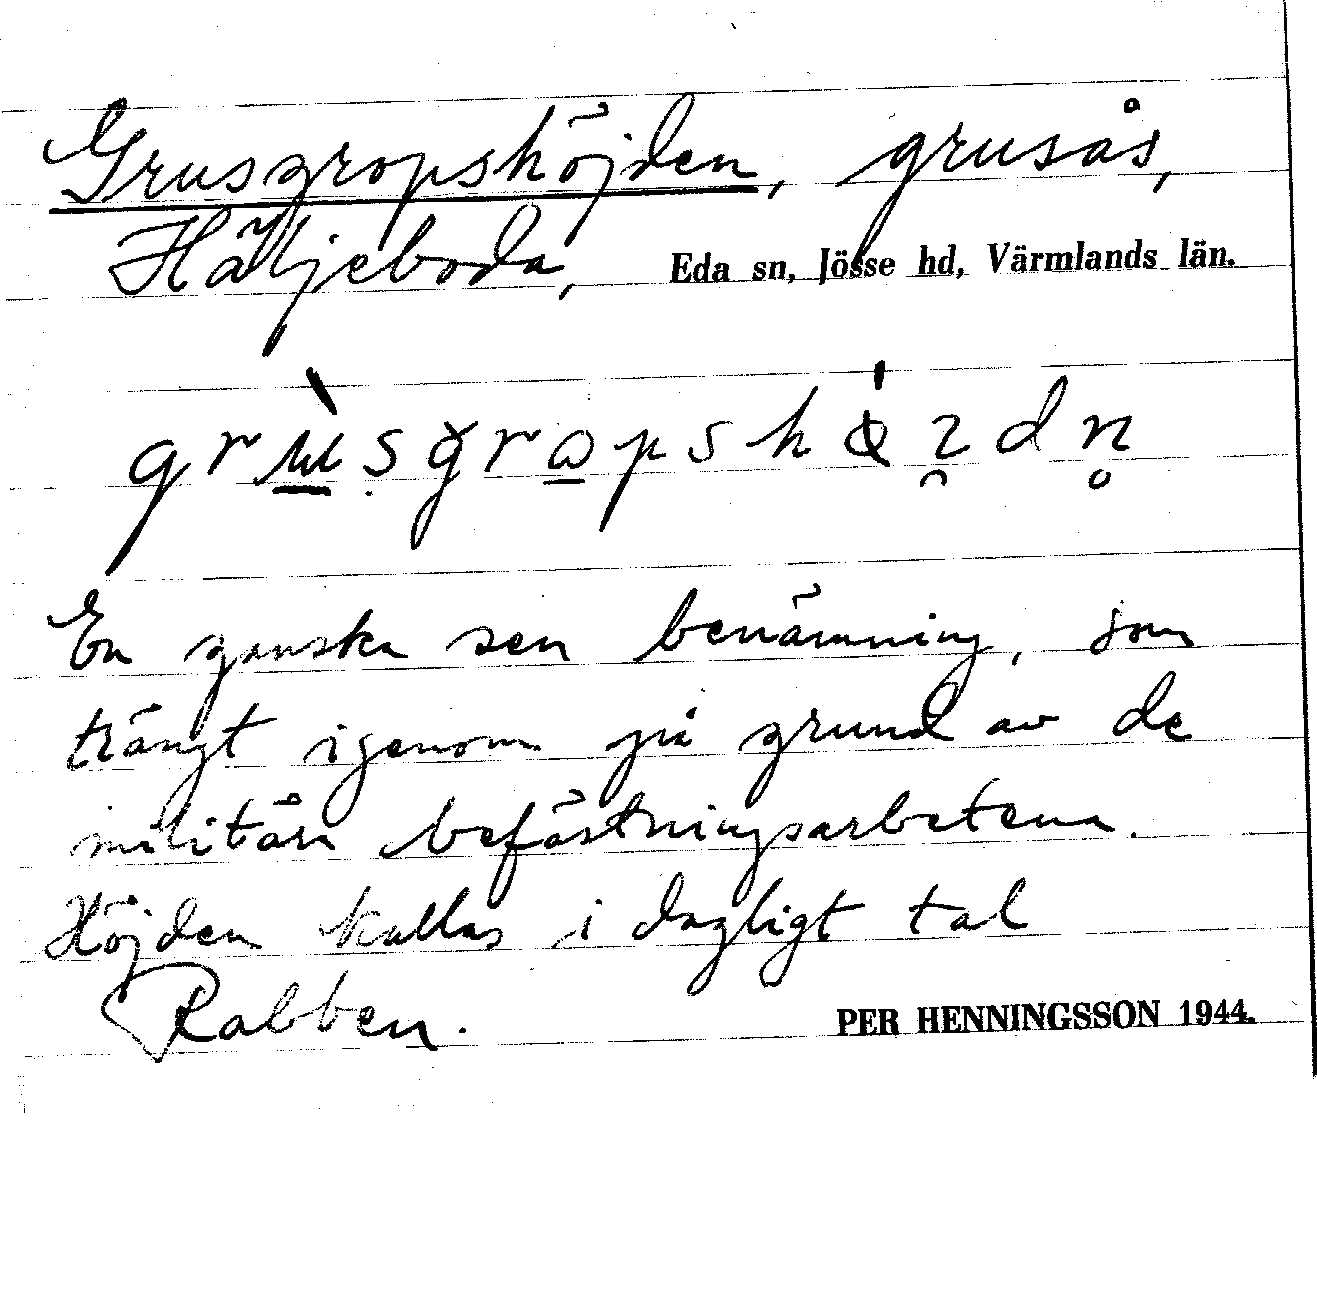 Grusgropshöjden, grusås,
Häljeboda, Eda sn, Jösse hd, Värmlands län.
En ganska sen benämning, som
trängt igenom på grund av de
militära befästningsarbetena.
Höjden kallas i dagligt tal
Rabben. PER HENNINGSSON 1944.